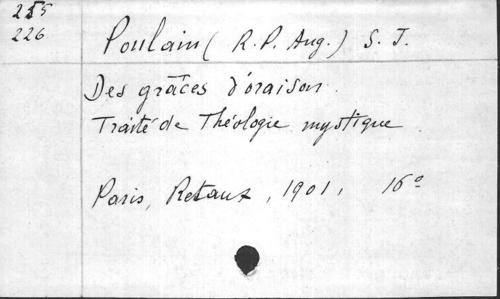 255
226
Poulain (R. P. Aug.) S. J.
Des grâces d'oraison.
Traité de Théologie mystique.
Paris, Retaux, 1901, 16º